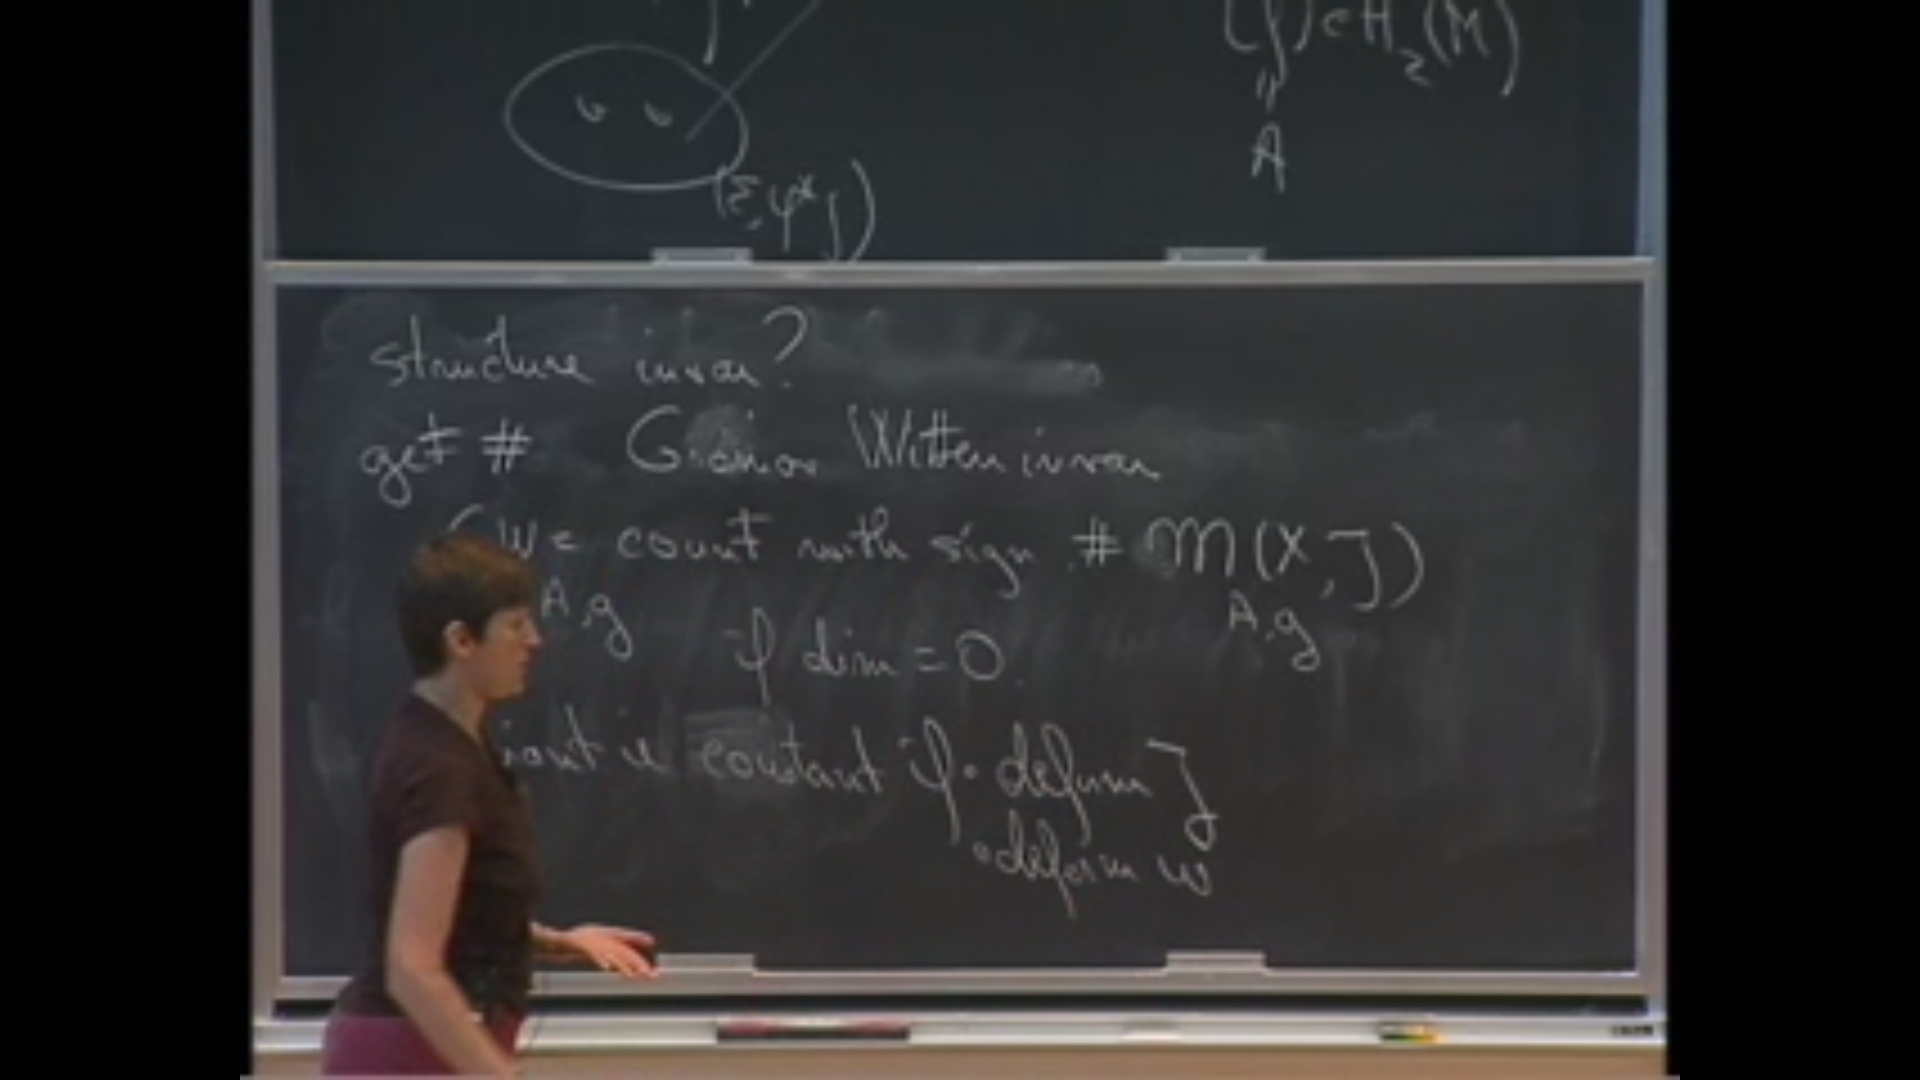 [f] ∈ H₂(M)
"
A
(Σ, φ*j)
structure invar?
get # Gromov Witten invar
GW = count with sign # M(X, J)
A,g A,g
if dim = 0.
count is constant if • deform J
• deform ω